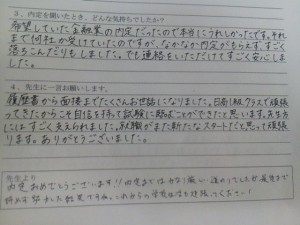 3、内定を聞いたとき、どんな気持ちでしたか?
希望していた金融業の内定だったので本当にうれしかったです。それ
まで何社か受けていたのですが、なかなか内定がもらえず、すごく
落ちこんだりもしました。でも連絡をいただけてすごく安心しま
した。
4、先生に一言お願いします。
履歴書から面接までたくさんお世話になりました。日商1級クラスで頑張
ってきたからこそ自信を持って試験に臨むことができたと思います。先生方に
はすごく支えられました。就職がまた新たなスタートだと思って頑張
ります。ありがとうございました。
先生より
内定おめでとうございます!!内定までは
努力した結果ですね。これからの学校生活も頑張ってください!